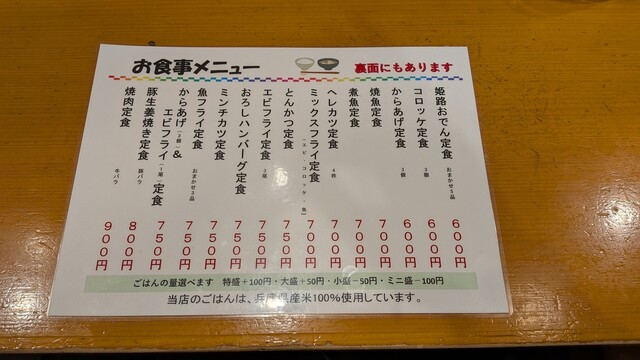 お食事メニュー
裏面にもあります
姫路おでん定食 おまかせ5品 600円
コロッケ定食 3個 600円
からあげ定食 3個 600円
焼魚定食 700円
煮魚定食 700円
ヘレカツ定食 4枚 700円
ミックスフライ定食 (エビ・コロッケ・魚) 700円
とんかつ定食 750円
エビフライ定食 3尾 750円
おろしハンバーグ定食 750円
ミンチカツ定食 750円
魚フライ定食 おまかせ3品 750円
からあげ(2個)&エビフライ(1尾)定食 750円
豚生姜焼き定食 豚バラ 800円
焼肉定食 牛バラ 900円
ごはんの量選べます 特盛+100円・大盛+50円・小盛-50円・ミニ盛-100円
当店のごはんは、兵庫県産米100%使用しています。